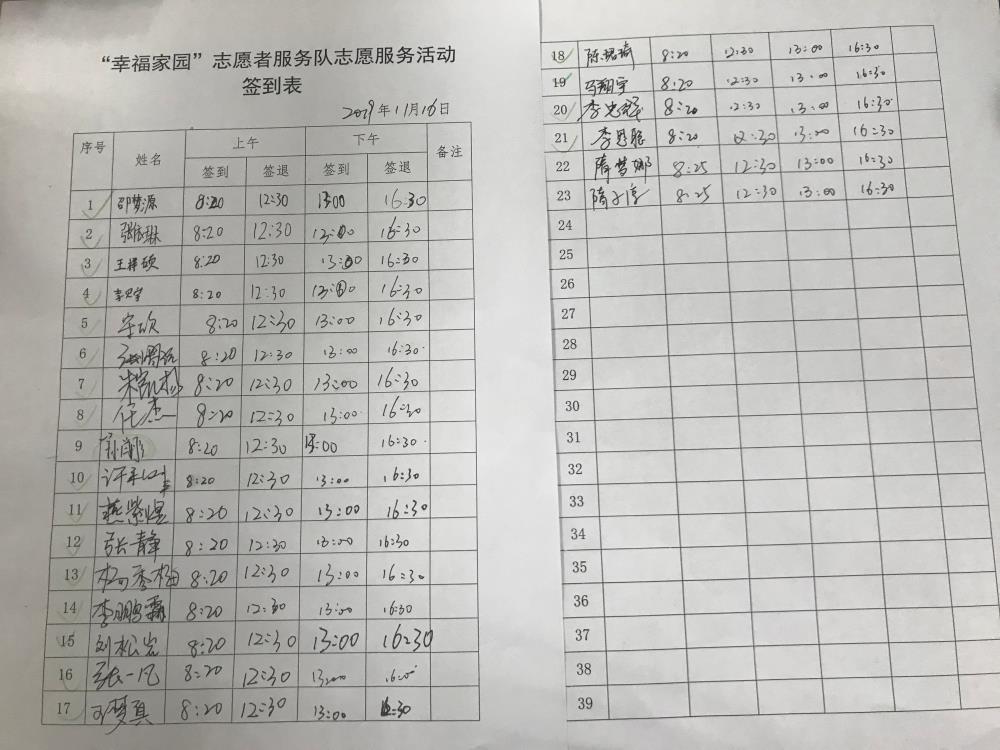 “幸福家园”志愿者服务队志愿服务活动
签到表
2019年11月16日
序号 姓名 上午 下午 备注
签到 签退 签到 签退
1 邵梦源 8:20 12:30 13:00 16:30
2 8:20 12:30 13:00 16:30
3 王梓硕 8:20 12:30 13:00 16:30
4 8:20 12:30 13:00 16:30
5 宋欣 8:20 12:30 13:00 16:30
6 8:20 12:30 13:00 16:30
7 8:20 12:30 13:00 16:30
8 任杰 8:20 12:30 13:00 16:30
9 8:20 12:30 13:00 16:30
10 8:20 12:30 13:00 16:30
11 燕紫煜 8:20 12:30 13:00 16:30
12 张静 8:20 12:30 13:00 16:30
13 杨秀梅 8:20 12:30 13:00 16:30
14 李鹏霸 8:20 12:30 13:00 16:30
15 刘松岩 8:20 12:30 13:00 16:30
16 张一凡 8:20 12:30 13:00
17 8:20 12:30 13:00 16:30
18 8:20 12:30 13:00 16:30
19 马翔宇 8:20 12:30 13:00 16:30
20 8:20 12:30 13:00 16:30
21 8:20 12:30 13:00 16:30
22 隋梦娜 8:25 12:30 13:00 16:30
23 隋子淳 8:25 12:30 13:00 16:30
24
25
26
27
28
29
30
31
32
33
34
35
36
37
38
39